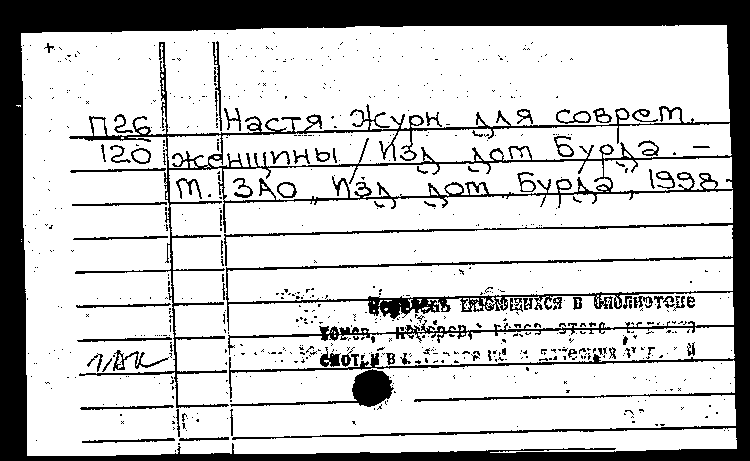 П26 Настя: Журн. для соврем.
120 женщины / Изд. дом Бурда. –
М.: ЗАО „Изд. дом „Бурда", 1998 -
Перечень имеющихся в библиотеке
томов, номеров, годов этого издания
смотри в